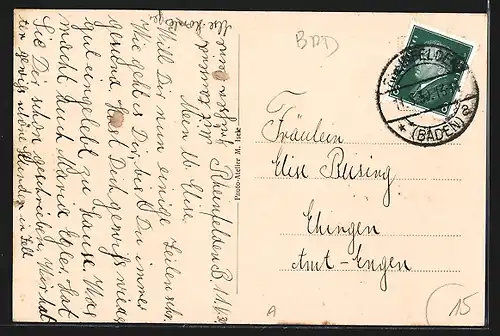 Rheinfelden B. 11./6.3
Mein lb. Elise.
Will Dir nun einige Zeilen schr.
Wie geht es Dir, bist Du immer
gesund, hast Dich gewiß wieder
gut eingelebt zu Hause. Was
macht auch Maria Egler, hat
Sie Dir schon geschrieben, Wir hat
ten gewiß schöne Stunden in Zell
Photo-Atelier M.
BRD
(BADEN)
Fräulein
Elise Busing
Ehingen
Amt-Engen
A
15